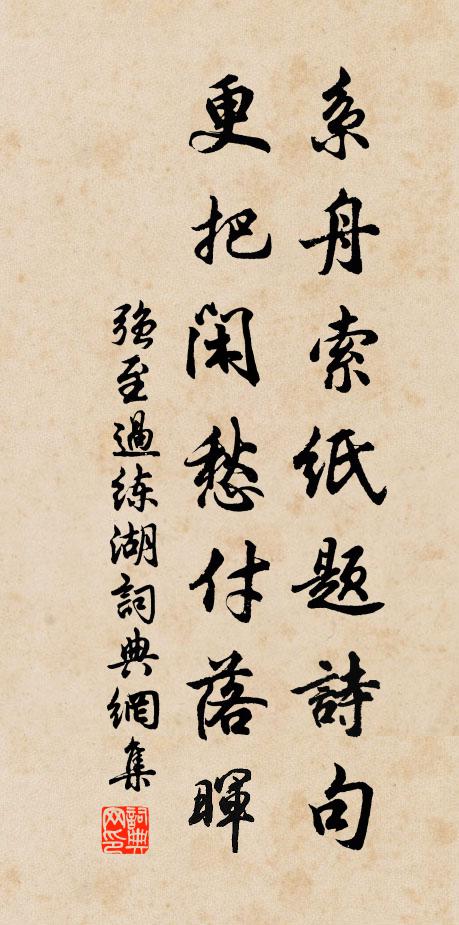 系舟索纸题詩句
更把闲愁付落暉
强至過练湖詞典網集
詞典网印